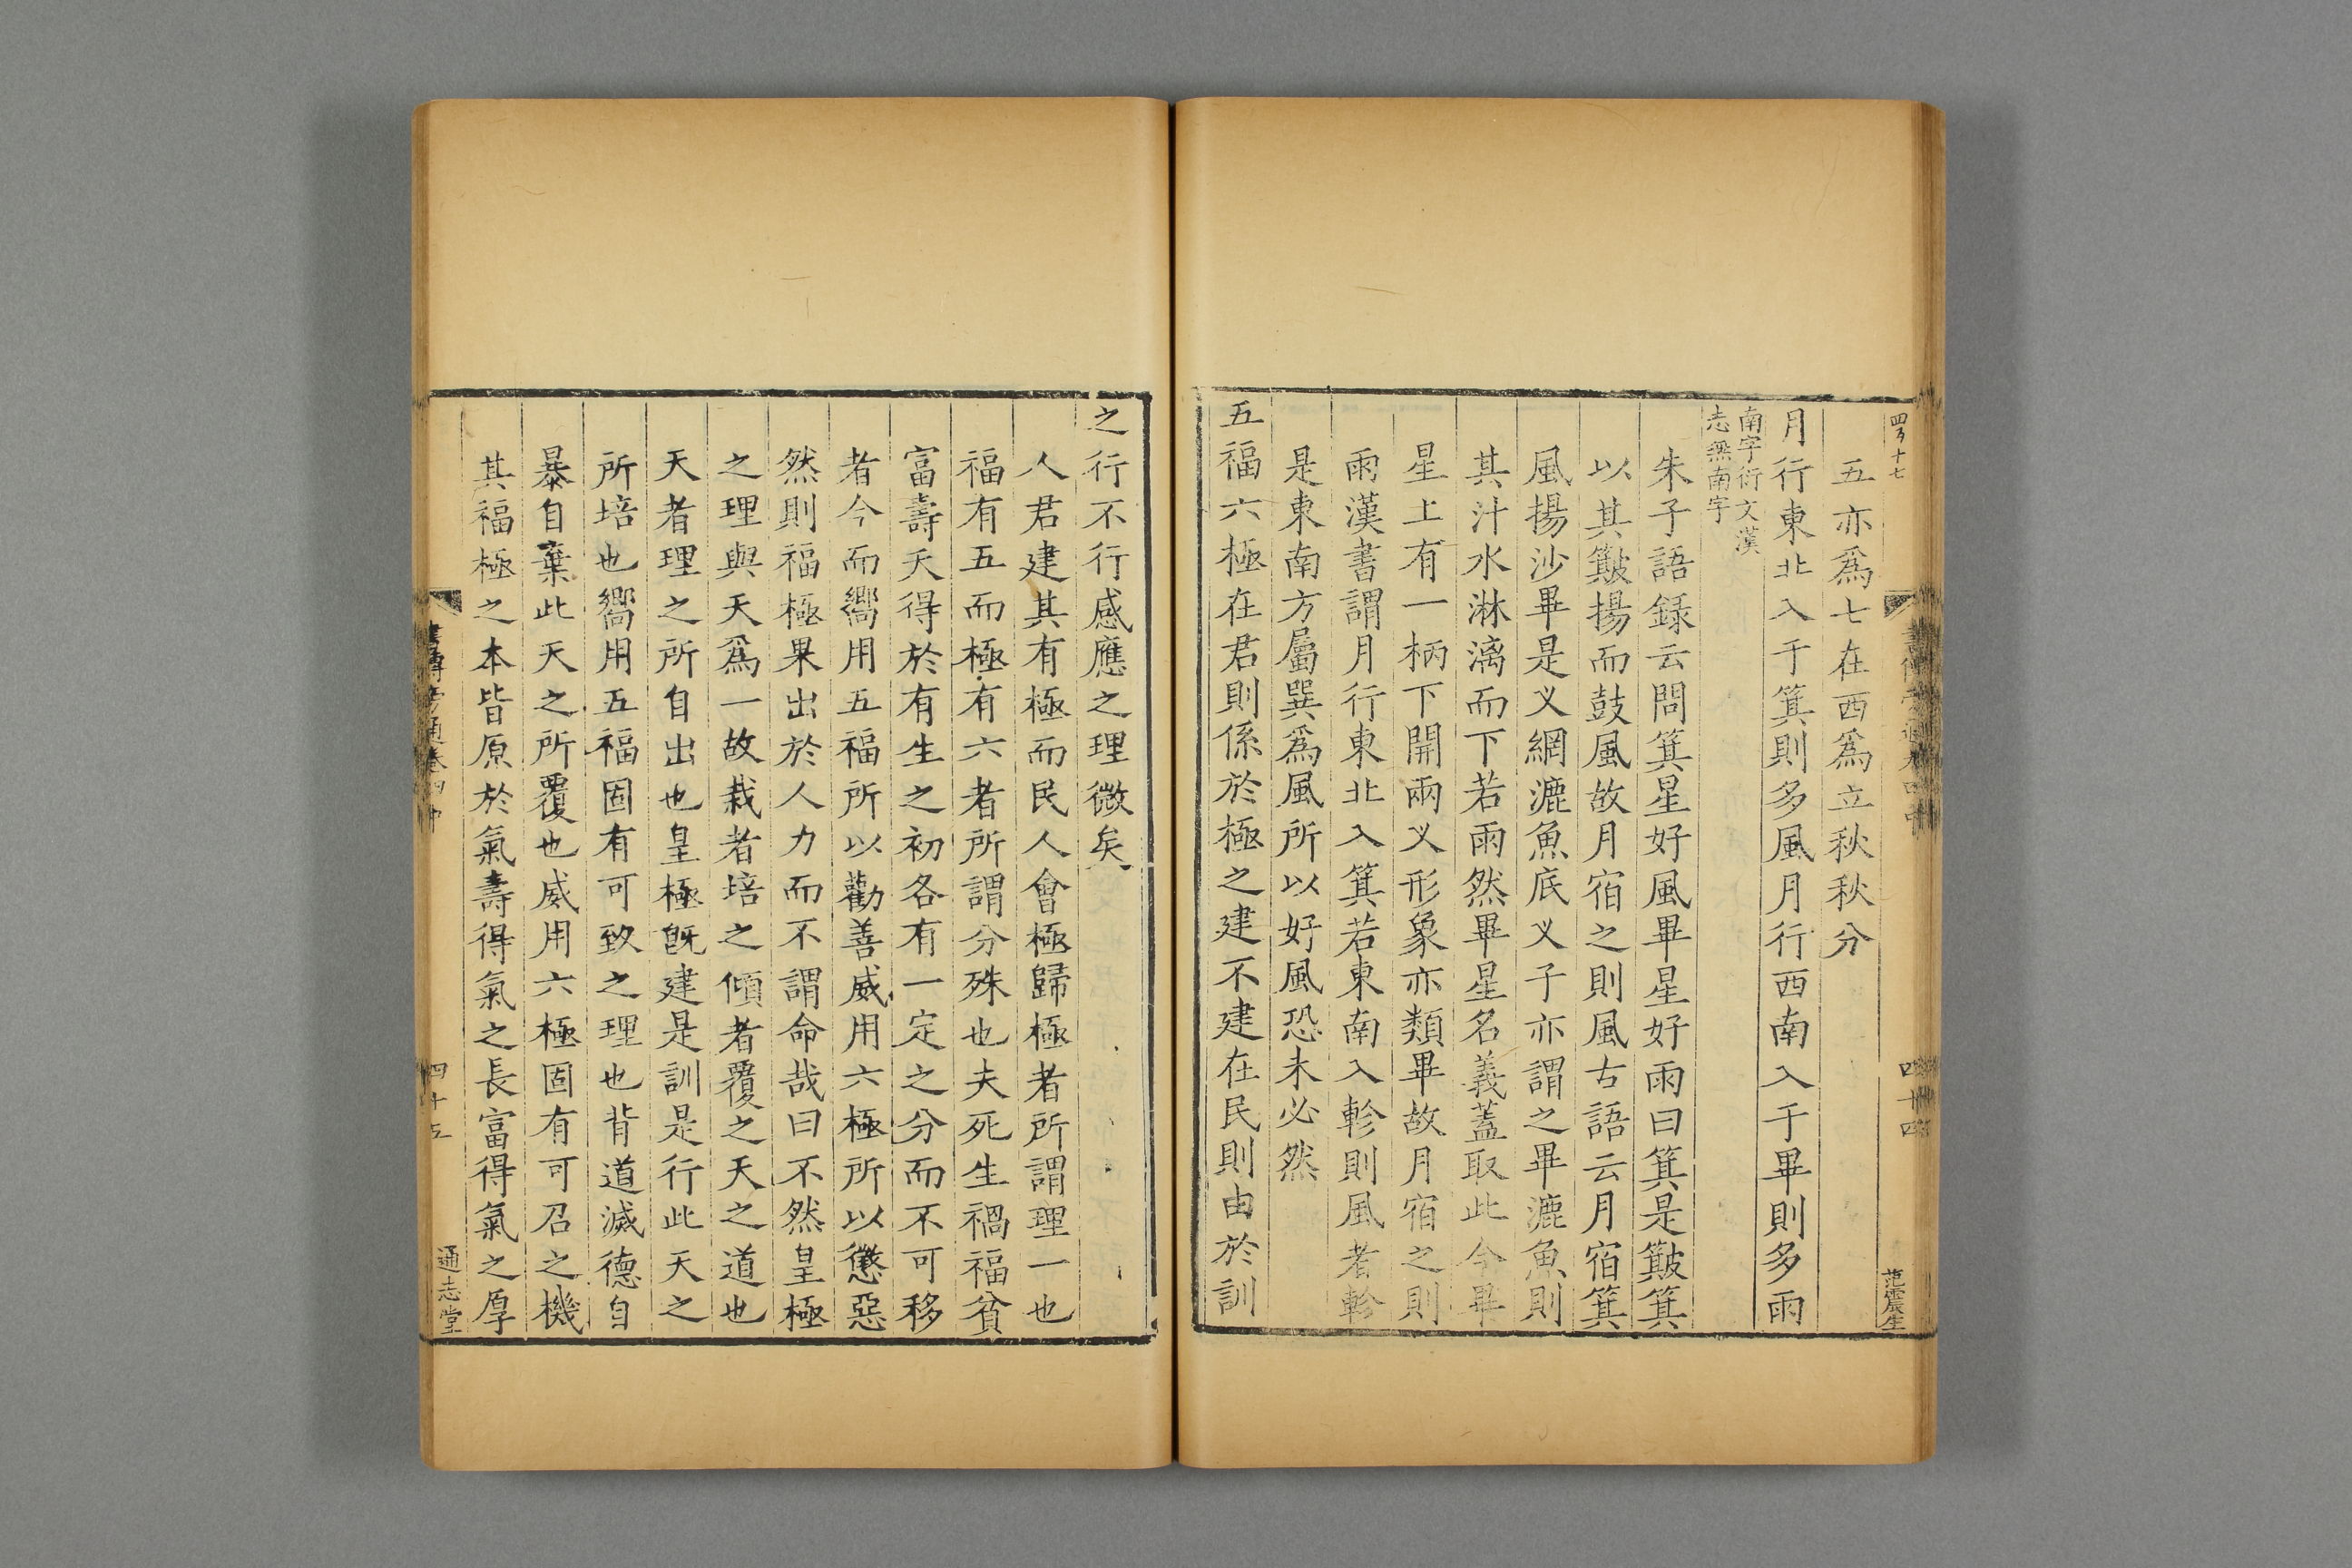 四百十七
書傳旁通卷四中
四十四
范震生
五亦爲七在西爲立秋秋分
月行東北入于箕則多風月行西南入于畢則多雨
南字衍文漢
志無南字
朱子語録云問箕星好風畢星好雨曰箕是簸箕
以其簸揚而鼓風故月宿之則風古語云月宿箕
風揚沙畢是义網漉魚底义子亦謂之畢漉魚則
其汁水淋漓而下若雨然畢星名義蓋取此今畢
星上有一柄下開兩义形象亦類畢故月宿之則
雨漢書謂月行東北入箕若東南入軫則風者軫
是東南方屬巽爲風所以好風恐未必然
五福六極在君則係於極之建不建在民則由於訓
之行不行感應之理微矣
人君建其有極而民人會極歸極者所謂理一也
福有五而極有六者所謂分殊也夫死生禍福貧
富壽夭得於有生之初各有一定之分而不可移
者今而嚮用五福所以勸善威用六極所以懲惡
然則福極果出於人力而不謂命哉曰不然皇極
之理與天爲一故栽者培之傾者覆之天之道也
天者理之所自出也皇極旣建是訓是行此天之
所培也嚮用五福固有可致之理也背道滅德自
暴自棄此天之所覆也威用六極固有可召之機
其福極之本皆原於氣壽得氣之長富得氣之厚
書傳旁通卷四中
四十五
通志堂